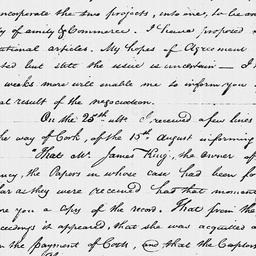 ncorporate the two projects, into one, to be an
y of amity & Commerce. I have proposed
tional articles. My hopes of Agreement
ted but still the issue is uncertain — I
weeks more will enable me to inform you
al result of the negociation.
On the 25th ulto I received a few lines
the way of Cork, of the 15th August informing
"That Mr. James King, the owner of
ncy, the Papers in whose case had been for
far as they were received had that moment
re you a copy of the record. That from the
ceedings it appeared, that she was acquitted
n the payment of Costs, and that the Captors